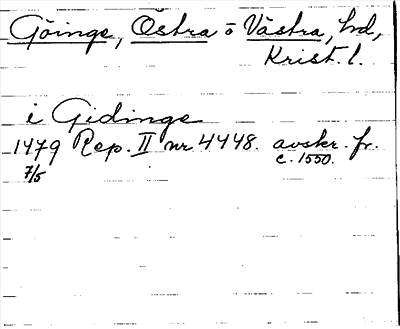 Göinge, Östra o Västra, hd,
Krist. l.
i Gidinge
1479 Rep. II nr 4448. avskr. fr.
7/5 c. 1550.